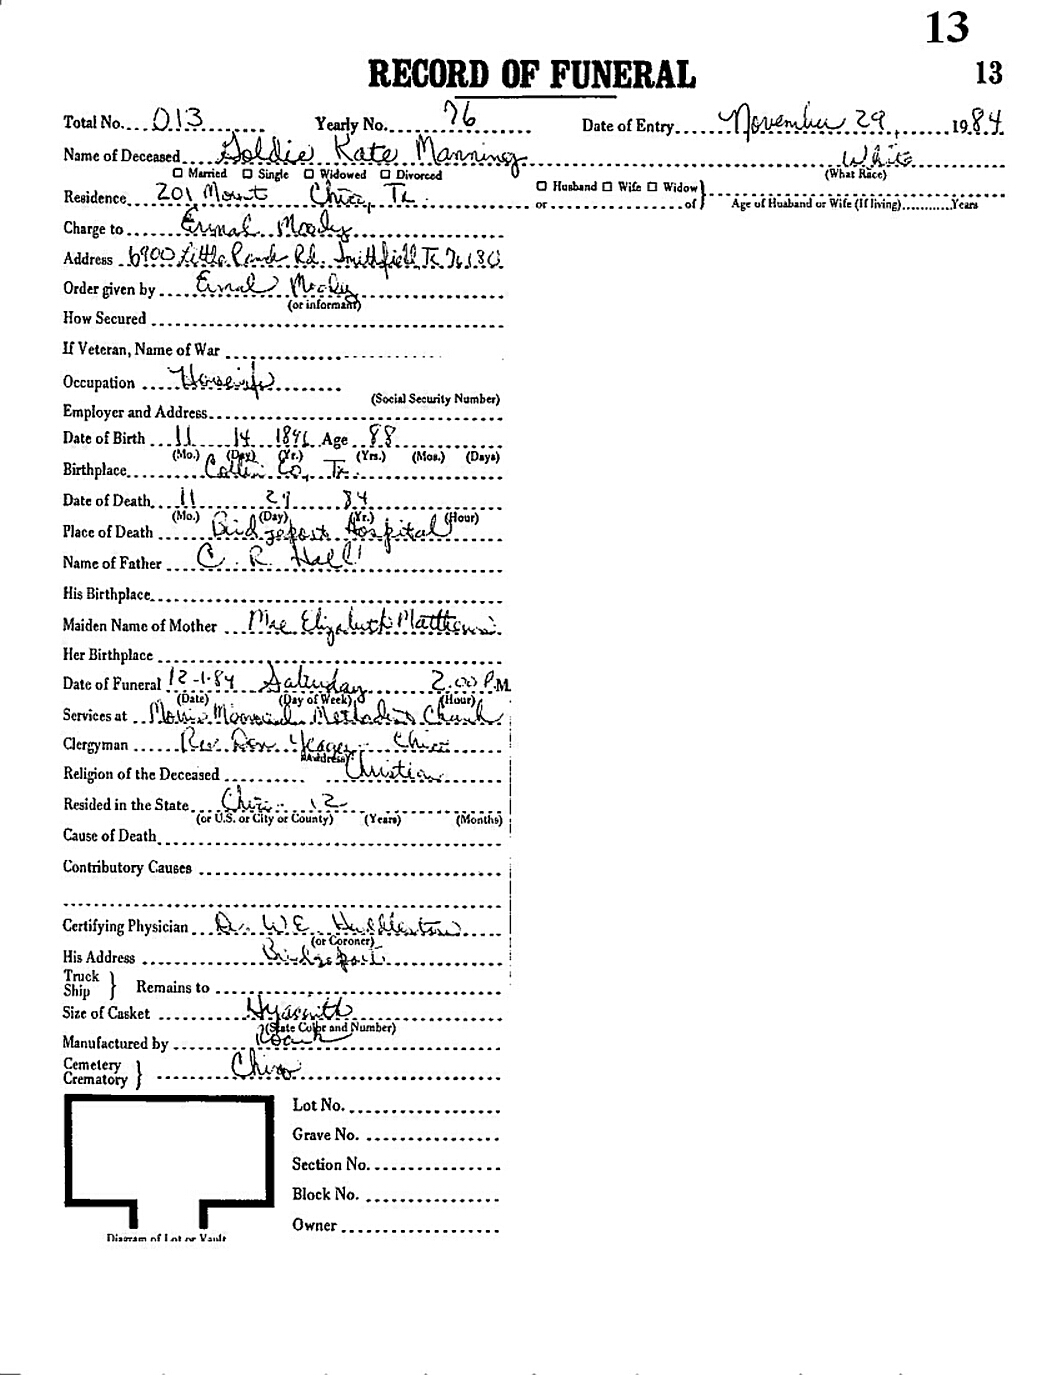 13
RECORD OF FUNERAL 13
Total No. 013 Yearly No. 76 Date of Entry November 29, 1984
Name of Deceased Goldie Kate Manning White
☐ Married ☐ Single ☐ Widowed ☐ Divorced (What Race)
☐ Husband ☐ Wife ☐ Widow
Residence 201 Mount Chico, Tx. or of Age of Husband or Wife (If living) Years
Charge to Ermal Moody
Address 6900 Little Ranch Rd. Smithfield Tx
Order given by Ermal Moody
(or informant)
How Secured
If Veteran, Name of War
Occupation Housewife
(Social Security Number)
Employer and Address
Date of Birth 11 14 1896 Age 88
(Mo.) (Day) (Yr.) (Yrs.) (Mos.) (Days)
Birthplace Collin Co, Tx.
Date of Death 11 29 84
(Mo.) (Day) (Yr.) (Hour)
Place of Death Bridgeport Hospital
Name of Father C. R. Hall
His Birthplace
Maiden Name of Mother Mae Elizabeth Matthews
Her Birthplace
Date of Funeral 12-1-84 Saturday 2:00 P.M.
(Date) (Day of Week) (Hour)
Services at Morris Memorial Methodist Church
Clergyman Rev. Don Yeager Chico
(Address)
Religion of the Deceased Christian
Resided in the State Chico 12
(or U.S. or City or County) (Years) (Months)
Cause of Death
Contributory Causes
Certifying Physician Dr. W E
(or Coroner)
His Address Bridgeport
Truck
Ship } Remains to
Size of Casket Hyacinth
(State Color and Number)
Manufactured by
Cemetery
Crematory } Chico
Lot No.
Grave No.
Section No.
Block No.
Owner
Diagram of Lot or Vault